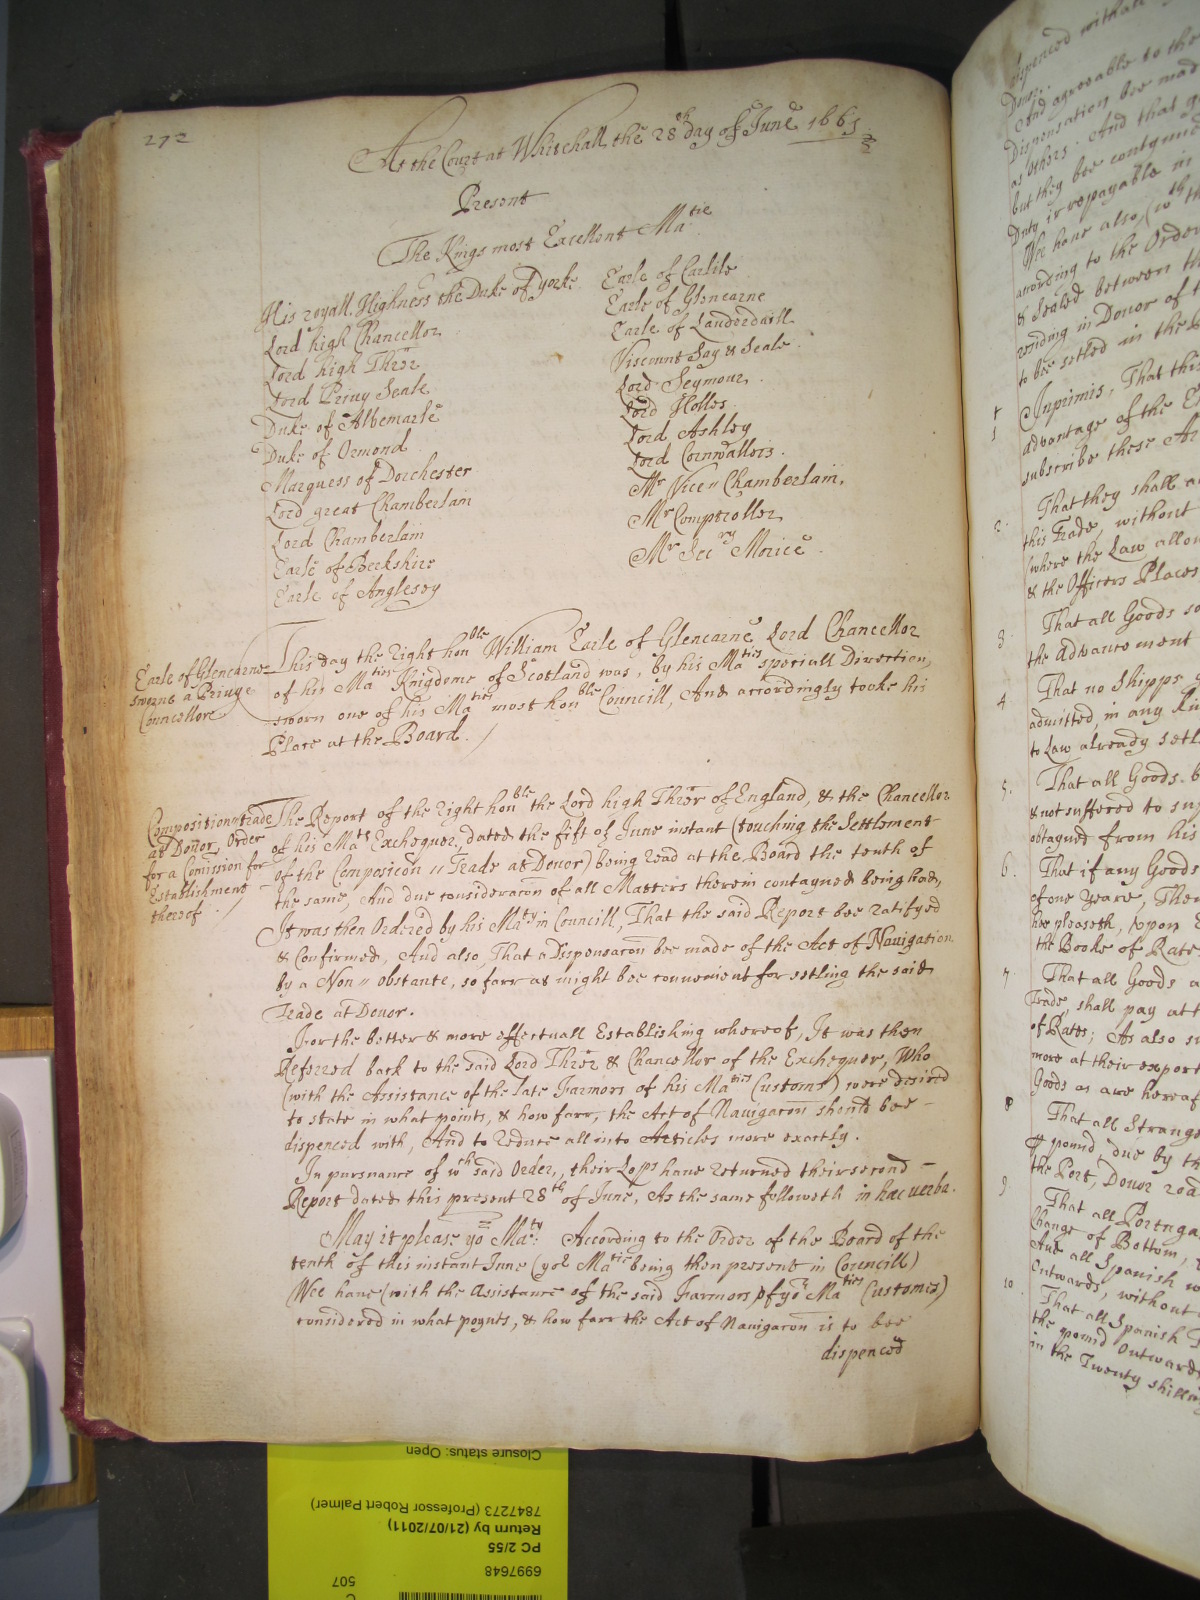 272
At the Court at Whitehall the 28th day of June 1661
Present
The Kings most Excellent Ma:tie
His royall Highness the Duke of Yorke
Lord high Chancellor
Lord high Thrēr
Lord Privy Seale
Duke of Albemarle
Duke of Ormond
Marquess of Dorchester
Lord great Chamberlain
Lord Chamberlain
Earle of Berkshire
Earle of Anglesey
Earle of Carlile
Earle of Glencarne
Earle of Lauderdaill
Viscount Say & Seale
Lord Seymour
Lord Hollis
Lord Ashley
Lord Cornwallois
Mr Vice=Chamberlain
Mr Comptroller
Mr Secry Morice
Earle of Glencarne
sworne a Privye
Councellore
This day the right honble William Earle of Glencarne Lord Chancellor
of his Maties Kingdome of Scotland was, by his Maties speciall Direction,
sworn one of his Maties most honble Councill, And accordingly tooke his
Place at the Board.
Composition=trade
at Dover, Order
for a Comission for
Establishment
thereof
The Report of the right honble the Lord high Thrēr of England, & the Chancellor
of his Mats Exchequer, dated the fift of June instant (touching the Settlement
of the Composicon=Trade at Dover) being read at the Board the tenth of
the same, And due consideracōn of all Matters therein contayned being had,
It was then Ordered by his Maty in Councill, That the said Report bee ratifyed
& Confirmed, And also, That a Dispensacōn bee made of the Act of Navigation
by a Non=obstante, so farr as might bee convenient for setling the said
Trade at Dover.
For the better & more effectuall Establishing whereof, It was then
Referred back to the said Lord Thrēr & Chancellor of the Exchequer, Who
(with the Assistance of the late Farmors of his Maties Customs) were desired
to state in what points, & how farr, the Act of Navigacōn should bee
dispenced with, And to reduce all into Articles more exactly.
In pursuance of wch said Order, their Lops have returned their second
Report dated this present 28th of June, As the same followeth in hæc verba.
May it please yor Maty: According to the Order of the Board of the
tenth of this instant June (yor Matie being then present in Councill)
Wee have (with the Assistance of the said Farmors of yor Maties Customes)
considered in what poynts, & how farr the Act of Navigacōn is to bee
dispenced
dispenced withall
Dover.
And agreeable to the
Dispensation bee mad
as others. And that
but they bee contynu
Duty is repayable in
Wee have also, (wth th
according to the Order
& Sealed between th
residing in Dover of t
to bee setled in the
1
Inprimis, That thi
advantage of the E
subscribe these Ar
2.
That they shall a
this Trade, without
(where the Law allow
& the Officers Places
3
That all Goods so
the advancement
4
That no Shipps
admitted, in any
to Law already setl
5.
That all Goods b
& not suffered to
obtayned from his
6.
That if any Goods
of one yeare, Then
hee pleaseth, upon
the Booke of Rate
7
That all Goods a
Trade, shall pay att
of Rates; As also
more at their export
Goods as are hereaf
8
That all Strange
pound, due by th
the Port, Dover roa
9
That all Portuga
Change of Bottom,
And all Spanish w
Outwards, without
10
That all Spanish
the pound Outward
in the Twenty shilling
Closure status: Open
7847273 (Professor Robert Palmer)
Return by (21/07/2011)
PC 2/55
6997648
507